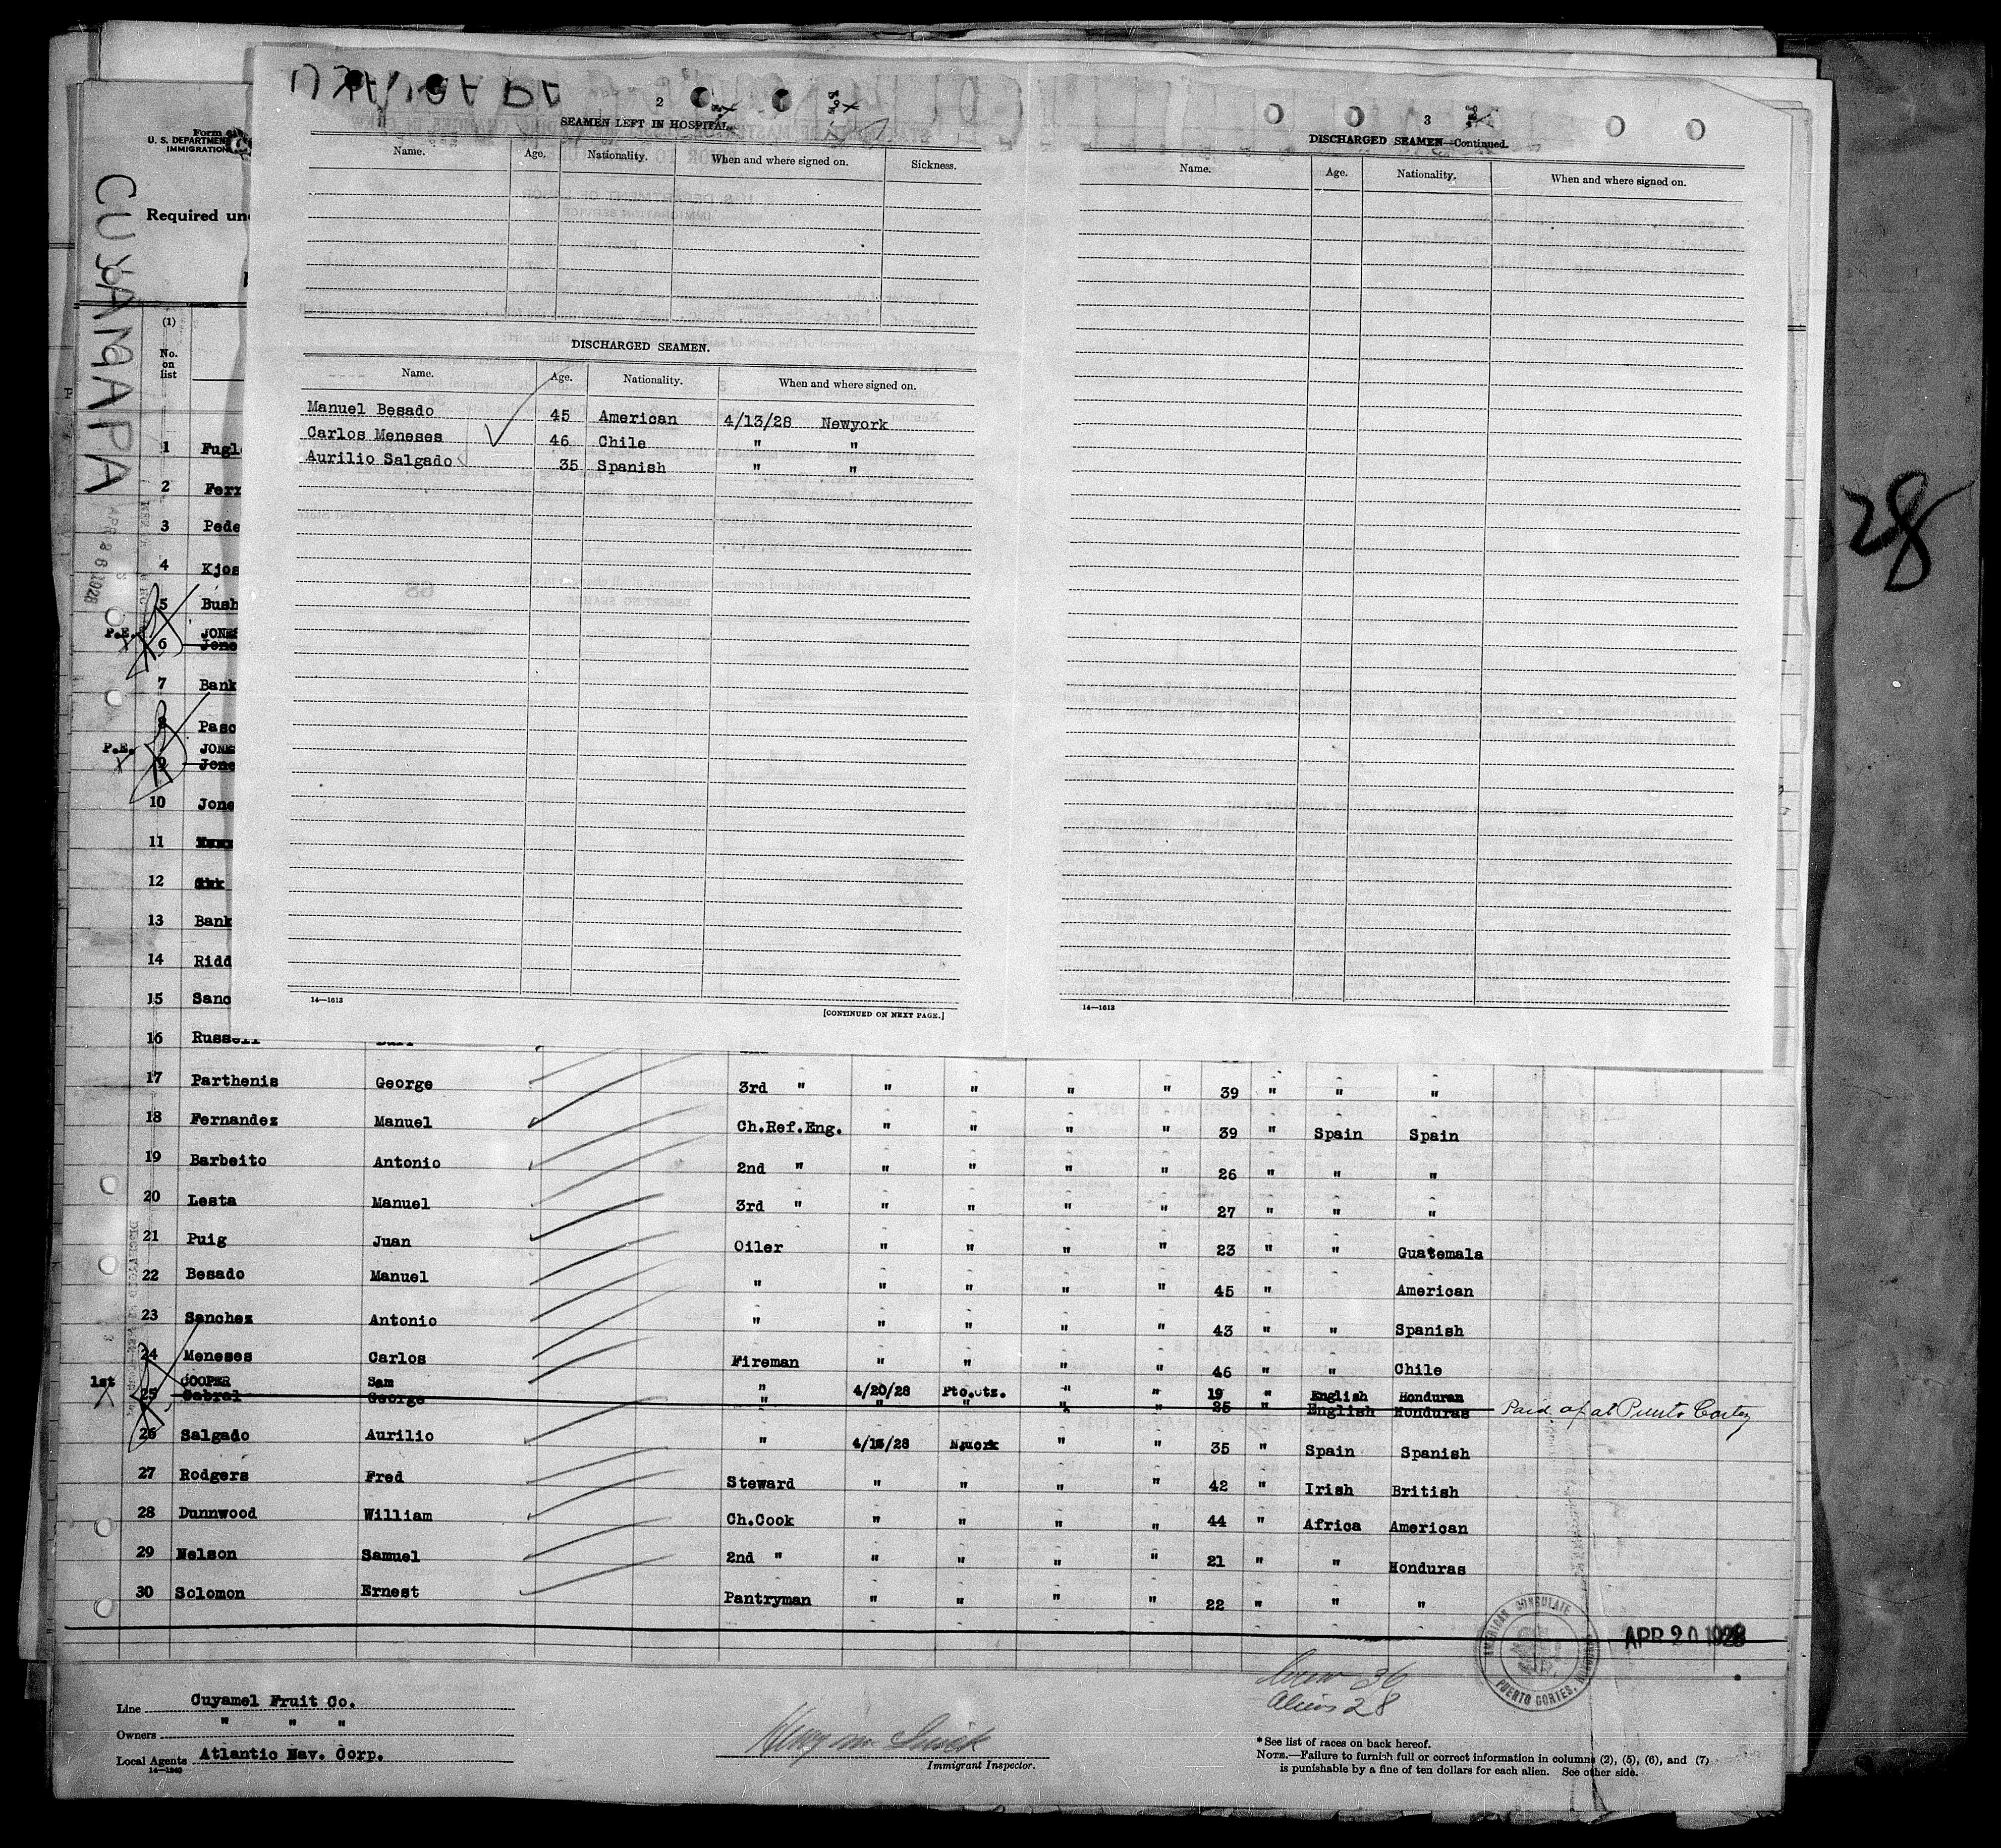 2
SEAMEN LEFT IN HOSPITAL.
Name. Age. Nationality. When and where signed on. Sickness.
DISCHARGED SEAMEN.
Name. Age. Nationality. When and where signed on.
Manuel Besado 45 American 4/13/28 Newyork
Carlos Meneses 46 Chile " "
Aurilio Salgado 35 Spanish " "
14—1613
[CONTINUED ON NEXT PAGE.]
3
DISCHARGED SEAMEN—Continued.
Name. Age. Nationality. When and where signed on.
14—1613
28
Form
U. S. DEPARTMEN
IMMIGRATION
Required un
CUYAMAPA
APR 26 1928
(1)
No. on list
1 Fugl
2 Fer
3 Pede
4 Kjos
5 Bush
P.E. JONES
6 Jone
7 Bank
8 Pasc
P.E. JONE
9 Jone
10 Jone
11
12
13 Bank
14 Ridd
15 Sanc
16 Russell
17 Parthenis George 3rd " " " " " 39 " " "
18 Fernandez Manuel Ch.Ref.Eng. " " " " 39 " Spain Spain
19 Barbeito Antonio 2nd " " " " " 26 " " "
20 Lesta Manuel 3rd " " " " " 27 " " "
21 Puig Juan Oiler " " " " 23 " " Guatemala
22 Besado Manuel " " " " " 45 " American
23 Sanchez Antonio " " " " " 43 " " Spanish
24 Meneses Carlos Fireman " " " " 46 " " Chile
1st COOPER Sam " 4/20/28 Pto.ctz. " " 19 " English Honduran
25 Cabral George " " " " " 25 " English Honduras Paid off at Puerto Cortez
26 Salgado Aurilio " 4/13/28 N.york " " 35 " Spain Spanish
27 Rodgers Fred Steward " " " " 42 " Irish British
28 Dunnwood William Ch.Cook " " " " 44 " Africa American
29 Nelson Samuel 2nd " " " " " 21 " " Honduras
30 Solomon Ernest Pantryman " " " " 22 " " "
AMERICAN CONSULATE
PUERTO CORTES, HONDURAS
APR 20 1928
Line Cuyamel Fruit Co.
Owners " " "
Local Agents Atlantic Nav. Corp.
14—1240
Immigrant Inspector.
Crew 36
Aliens 28
*See list of races on back hereof.
NOTE.—Failure to furnish full or correct information in columns (2), (5), (6), and (7)
is punishable by a fine of ten dollars for each alien. See other side.